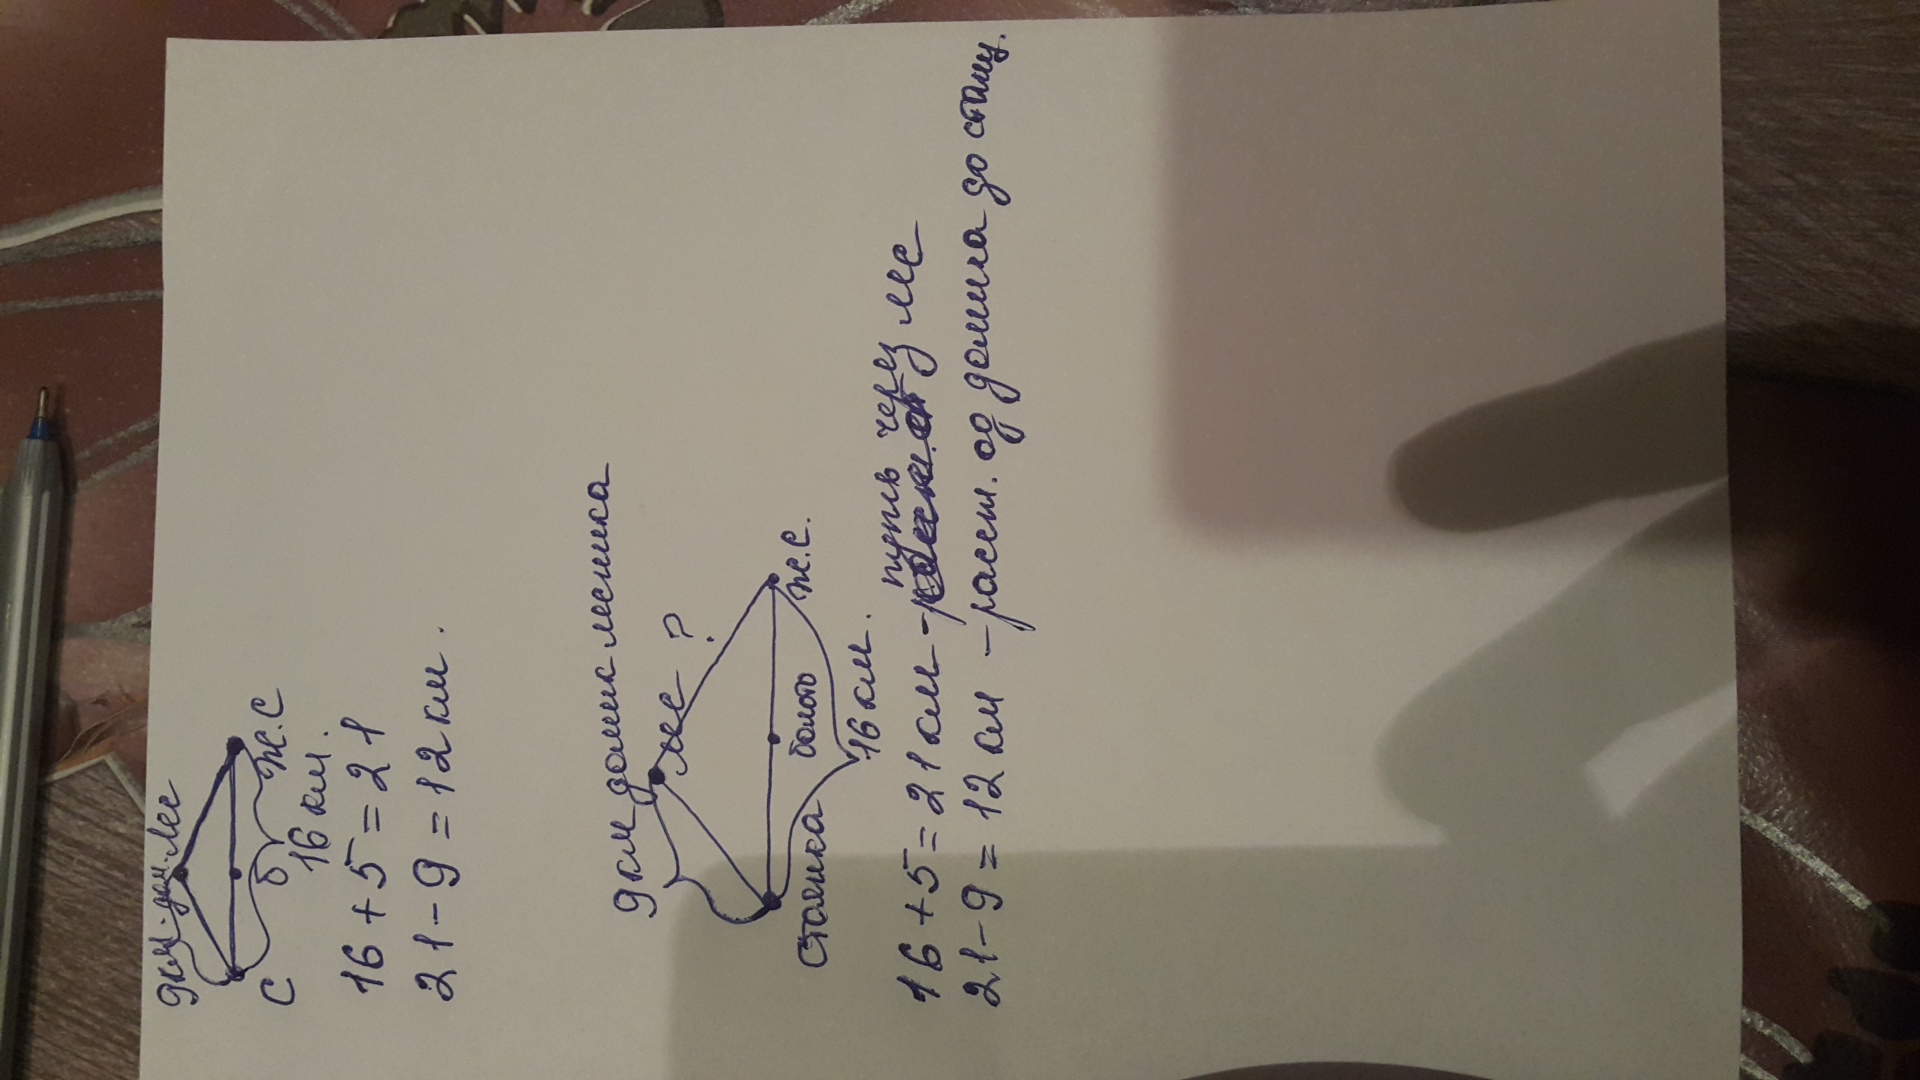 9 км. дом. лес
С б ж.с
16 км.
16 + 5 = 21
21 - 9 = 12 км.
9 км домик лесника
лес ?
стоянка болото ж.с.
16 км.
путь через лес
16 + 5 = 21 км -
21 - 9 = 12 км - расст. од домика до станц.